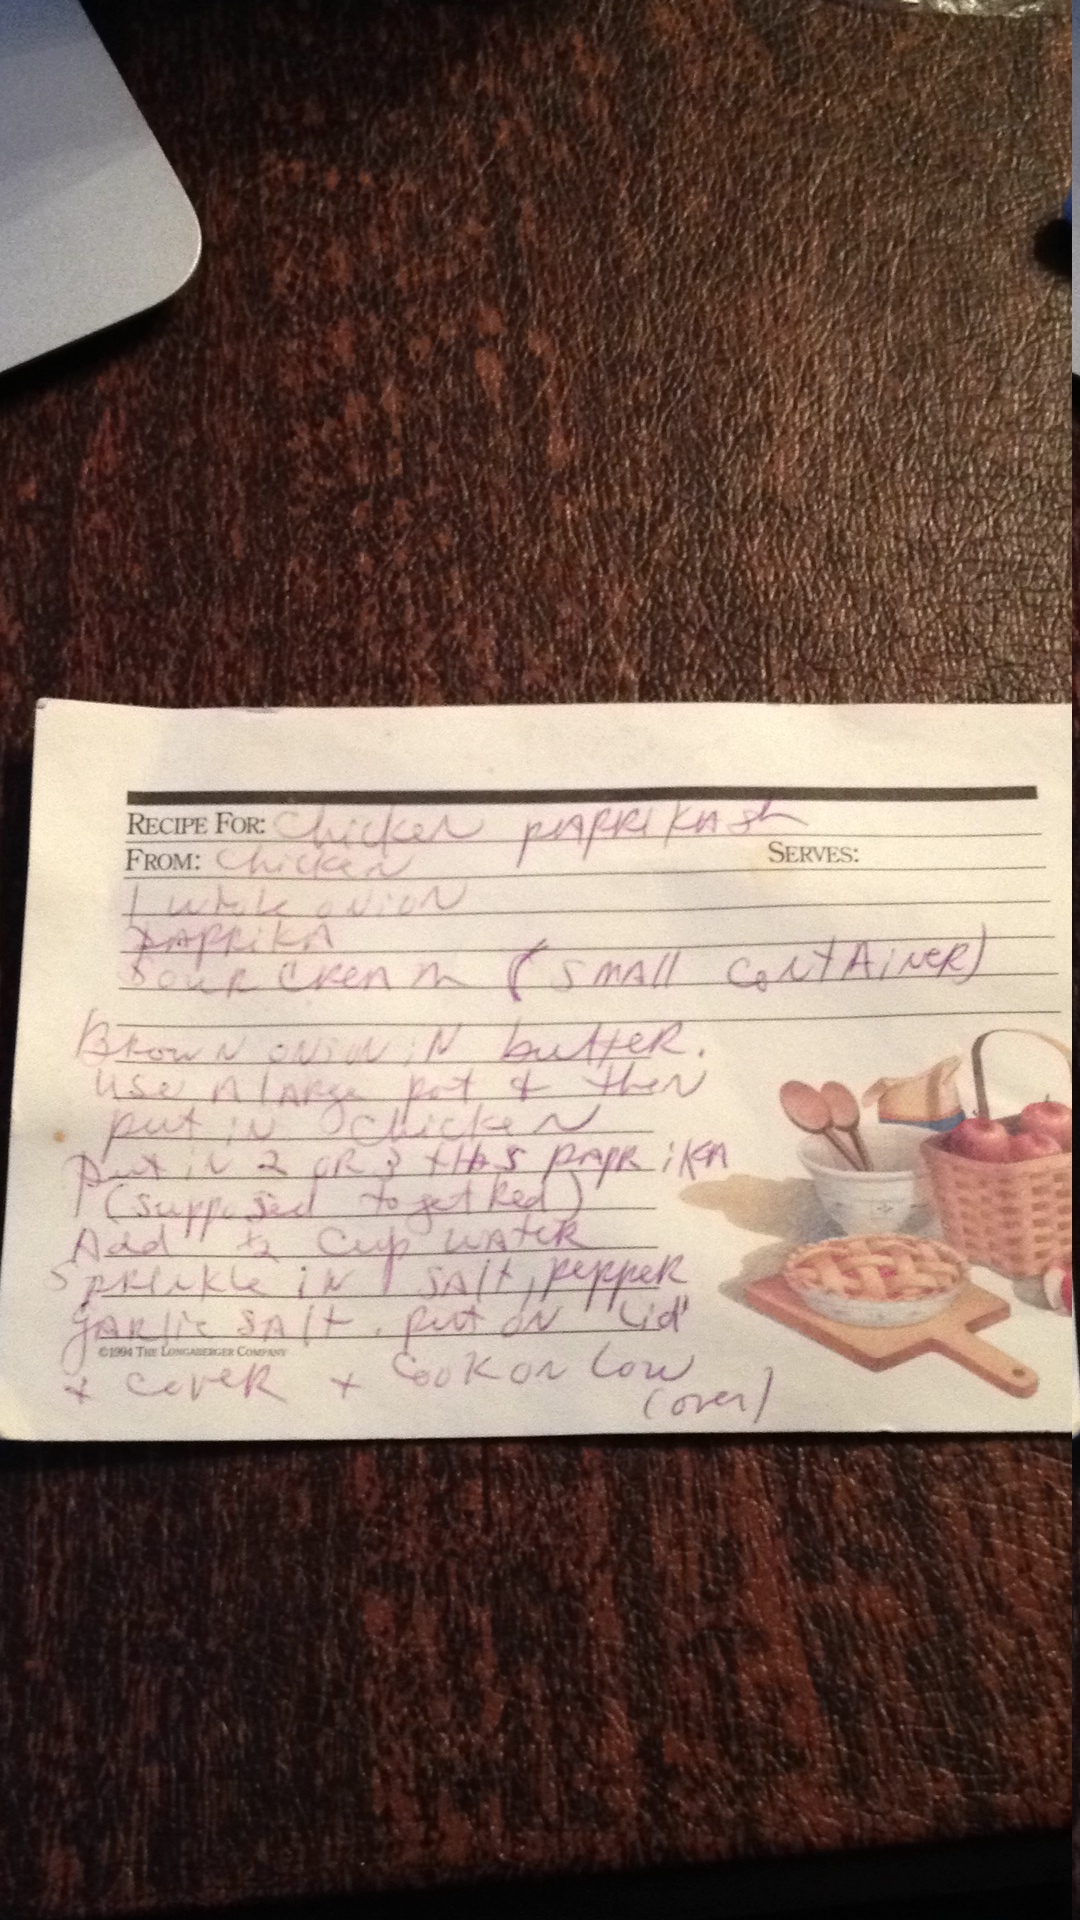 RECIPE FOR: Chicken PAPRIKASh
FROM: Chicken SERVES:
1 whole onion
PAPRIKA
Sour CREAM (SMAll CONTAINER)
Brown onion in butter.
use A large pot & then
put in chicken
Put in 2 OR 3 tbs PAPRIKA
(supposed to get Red)
Add ½ cup water
Sprinkle in SAlt, pepper
garlic SAlt. put on lid
©1994 THE LONGABERGER COMPANY
& cover + Cook on low
(over)